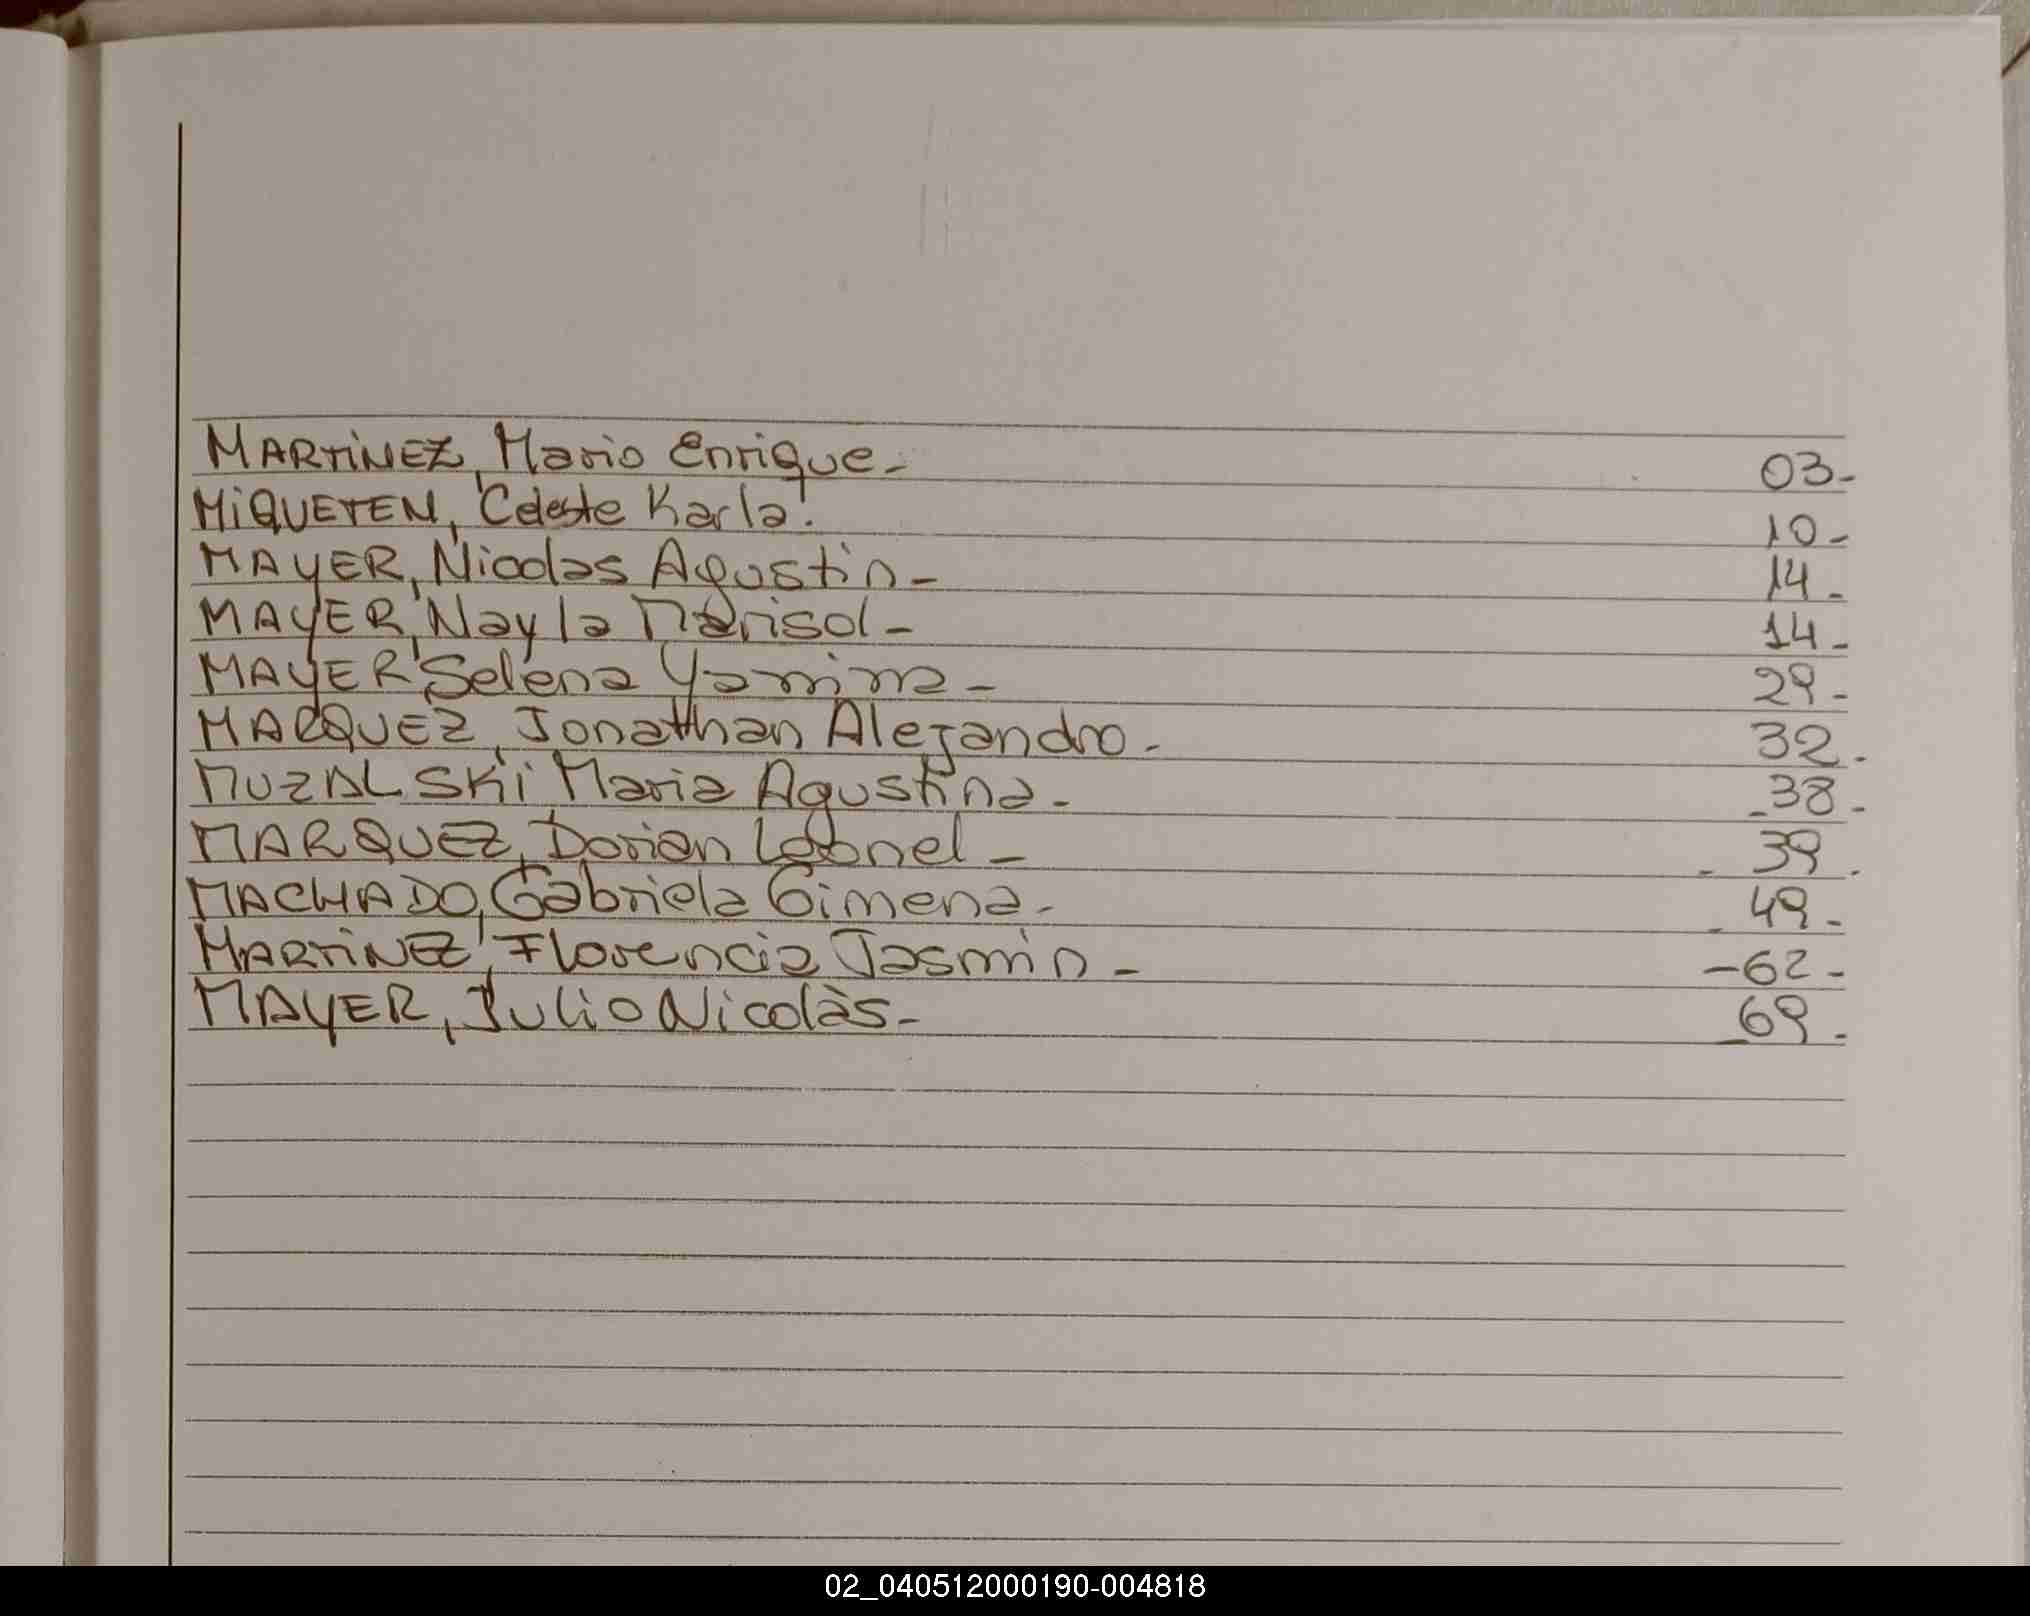 MARTINEZ, Mario Enrique- 03-
MIQUETEN, Celeste Karla. 10-
MAYER, Nicolas Agustin- 14-
MAYER, Nayla Marisol- 14-
MAYER, Selena Yamima- 29-
MARQUEZ, Jonathan Alejandro. 32.
MUZALSKI Maria Agustina- -38-
MARQUEZ, Dorian Leonel- -39.
MACHADO, Gabriela Gimena- -49-
MARTINEZ, Florencia Jasmin- -62-
MAYER, Julio Nicolàs- -69-
02_040512000190-004818